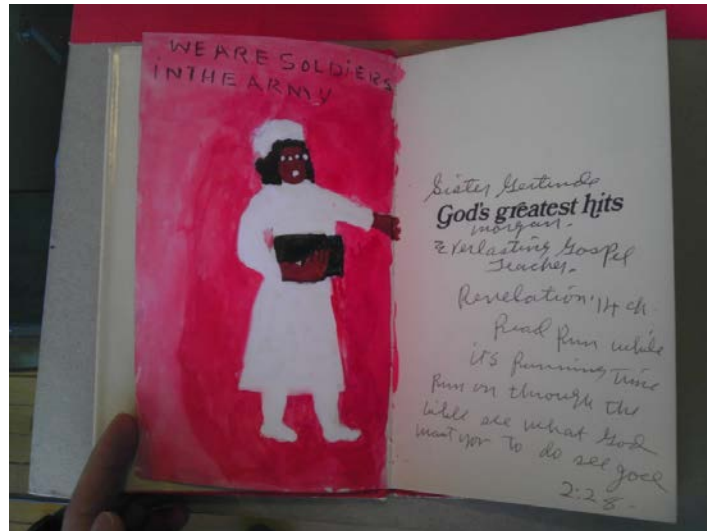 WE ARE SOLDIERS
IN THE ARMY
Sister Gertrude
God's greatest hits
morgan.
Everlasting Gospel
Teacher.
Revelation 14 ch.
Read Run while
its Running Time
Run on through the
bible see what God
want you to do see Joel
2:28.